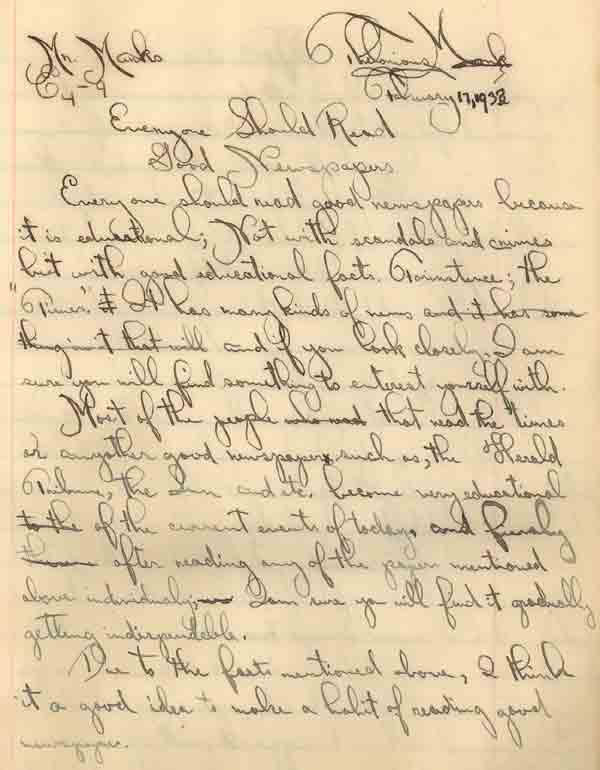 Mr. Marks Thelonious Monk
E4-9 February 17, 1933
Everyone Should Read
Good Newspapers
Everyone should read good newspapers because
it is educational; Not with scandals and crimes
but with good educational facts. Forinstence; the
"Times". It has many kinds of news and it has some
thing in it that will and if you look closely, I am
sure you will find something to enterest yourself with.
Most of the people who read that read the "times
or anyother good newspaper, such as, the "Herald
Tribune, the Sun and etc. become very educational
to the of the current events of today. and
after reading any of the papers mentioned
above individualy, I am sure you will find it gradually
getting indispendable.
Due to the facts mentioned above, I think
it a good idea to make a habit of reading good
newspapers.